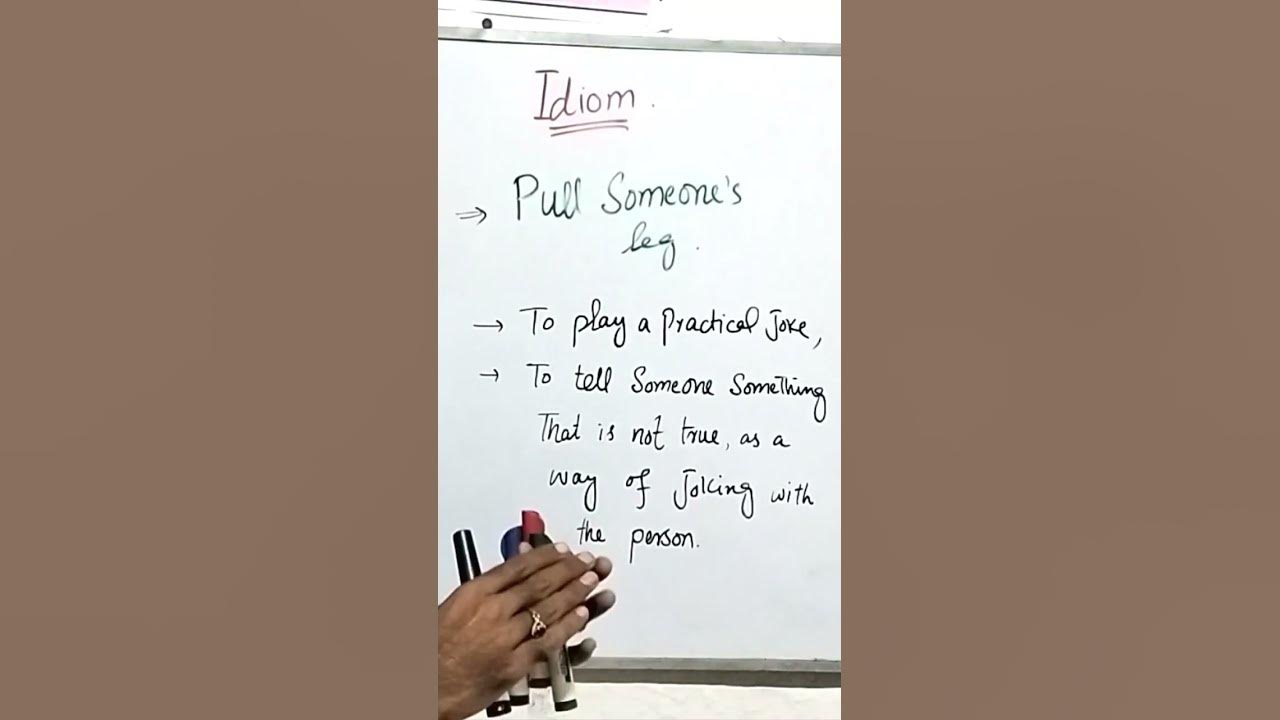 Idiom.
⇒ Pull Someone's
leg.
→ To play a Practical Joke,
→ To tell Someone Something
That is not true, as a
way of Joking with
the person.